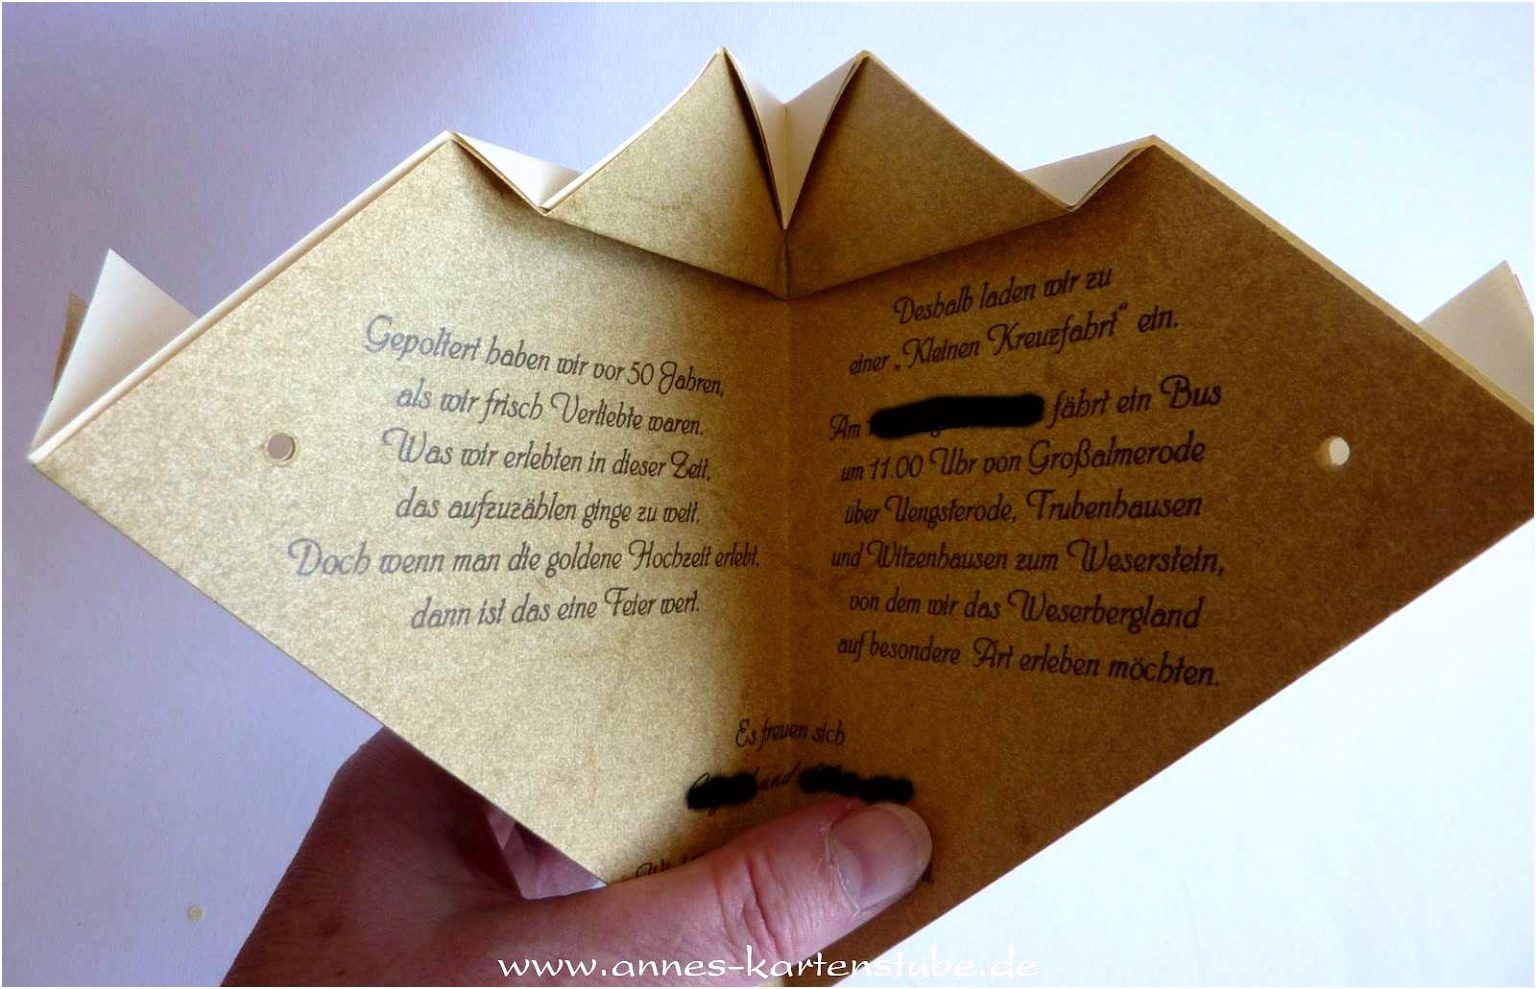 Gepoltert haben wir vor 50 Jahren,
als wir frisch Verliebte waren.
Was wir erlebten in dieser Zeit,
das aufzuzählen ginge zu weit.
Doch wenn man die goldene Hochzeit erlebt,
dann ist das eine Feier wert.
Deshalb laden wir zu
einer „Kleinen Kreuzfahrt“ ein.
Am fährt ein Bus
um 11.00 Uhr von Großalmerode
über Uengsterode, Trubenhausen
und Witzenhausen zum Weserstein,
von dem wir das Weserbergland
auf besondere Art erleben möchten.
Es freuen sich
und
www.annes-kartenstube.de